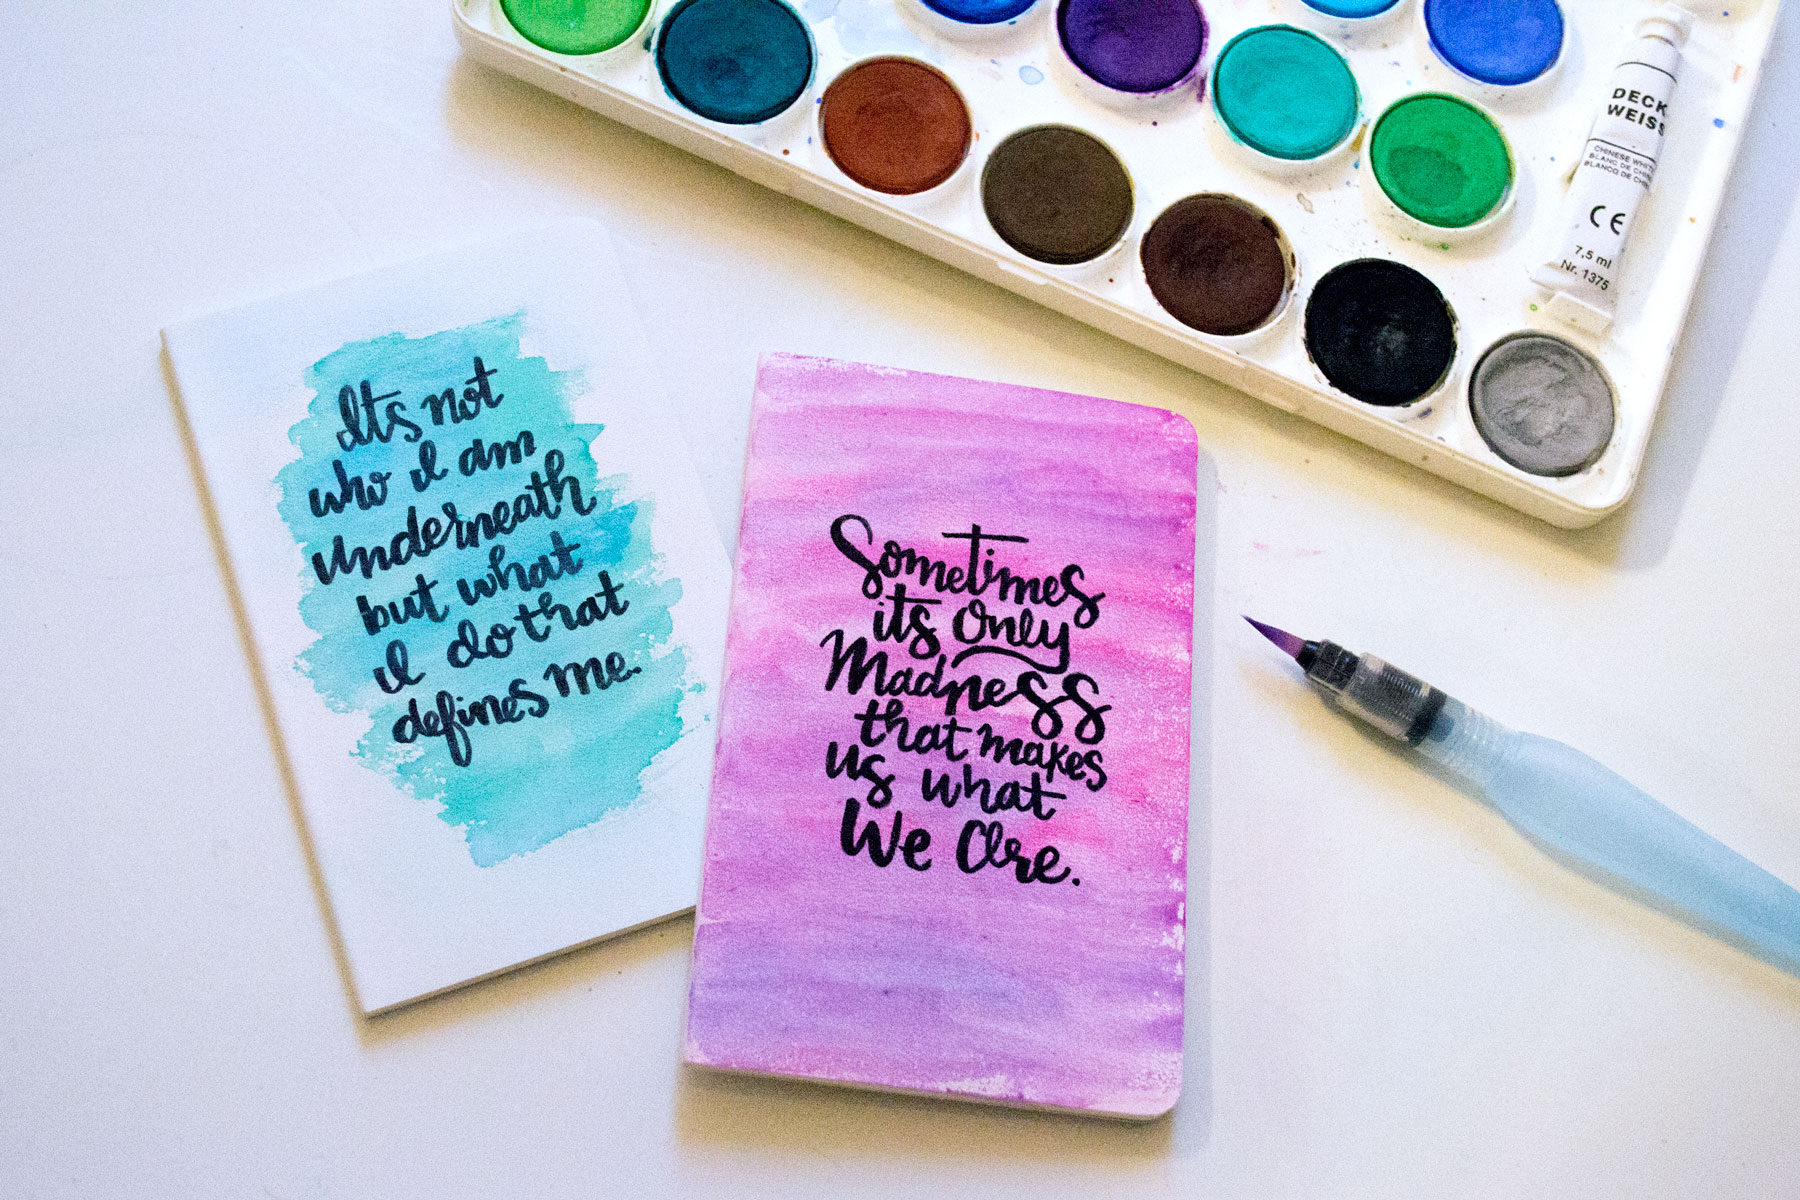 Its not
who I am
underneath
but what
I do that
defines me.
Sometimes
its only
Madness
that makes
us what
We Are.
DECK
WEISS
CHINESE WHIT
BLANC DE CHIN
BLANCO DE CHI
CE
7,5 ml
Nr. 1375